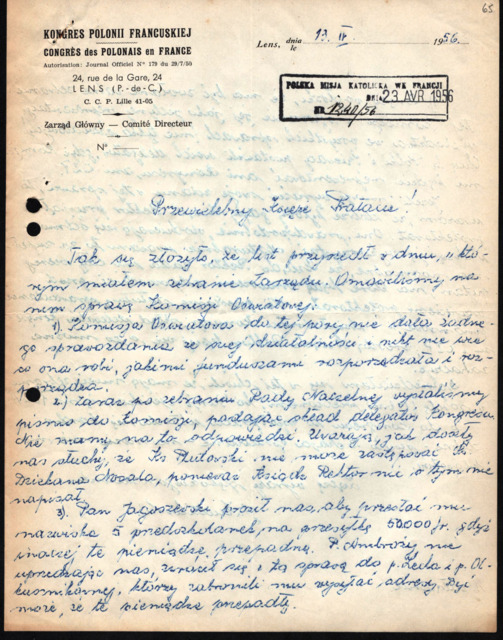 65
KONGRES POLONII FRANCUSKIEJ
CONGRÈS des POLONAIS en FRANCE
Autorisation: Journal Officiel N° 179 du 29/7/50
24, rue de la Gare, 24
LENS (P.-de-C.)
C. C. P. Lille 41-05
Zarząd Główny — Comité Directeur
N°
Lens, dnia le 19. IV. 1956.
POLSKA MISJA KATOLICKA WE FRANCJI
DNIA 23 AVR 1956
NR 1240/56
Przewielebny Księże Prałacie!
Tak się złożyło, że list przyszedł w dniu, w któ-
rym miałem zebranie Zarządu. Omówiliśmy na
nim sprawę Komisji Oświatowej.
1) Komisja Oświatowa do tej pory nie dała żadne-
go sprawozdania ze swej działalności i nikt nie wie
co ona robi, jakimi funduszami rozporządzała i roz-
porządza.
2) zaraz po zebraniu Rady Naczelnej wysłaliśmy
pismo do Komisji, podając skład delegatów Kongresu.
Nie mamy na to odpowiedzi. Uważają, jak doszły
nas słuchy, że Ks. nie może zastępować Ks.
Dziekana Nosala, ponieważ Ksiądz Rektor nic o tym nie
napisał.
3) Pan Jagoszewski prosił nas, aby przesłać mu
nazwiska 5 przedszkolanek na przesyłkę 50000 fr. gdyż
inaczej te pieniądze przepadną. P. Ambroży nie
uprzedzając nas, zwrócił się z tą sprawą do p. Zeila i p.
którzy zabronili mu wysyłać adresy. Być
może, że te pieniądze przepadły.